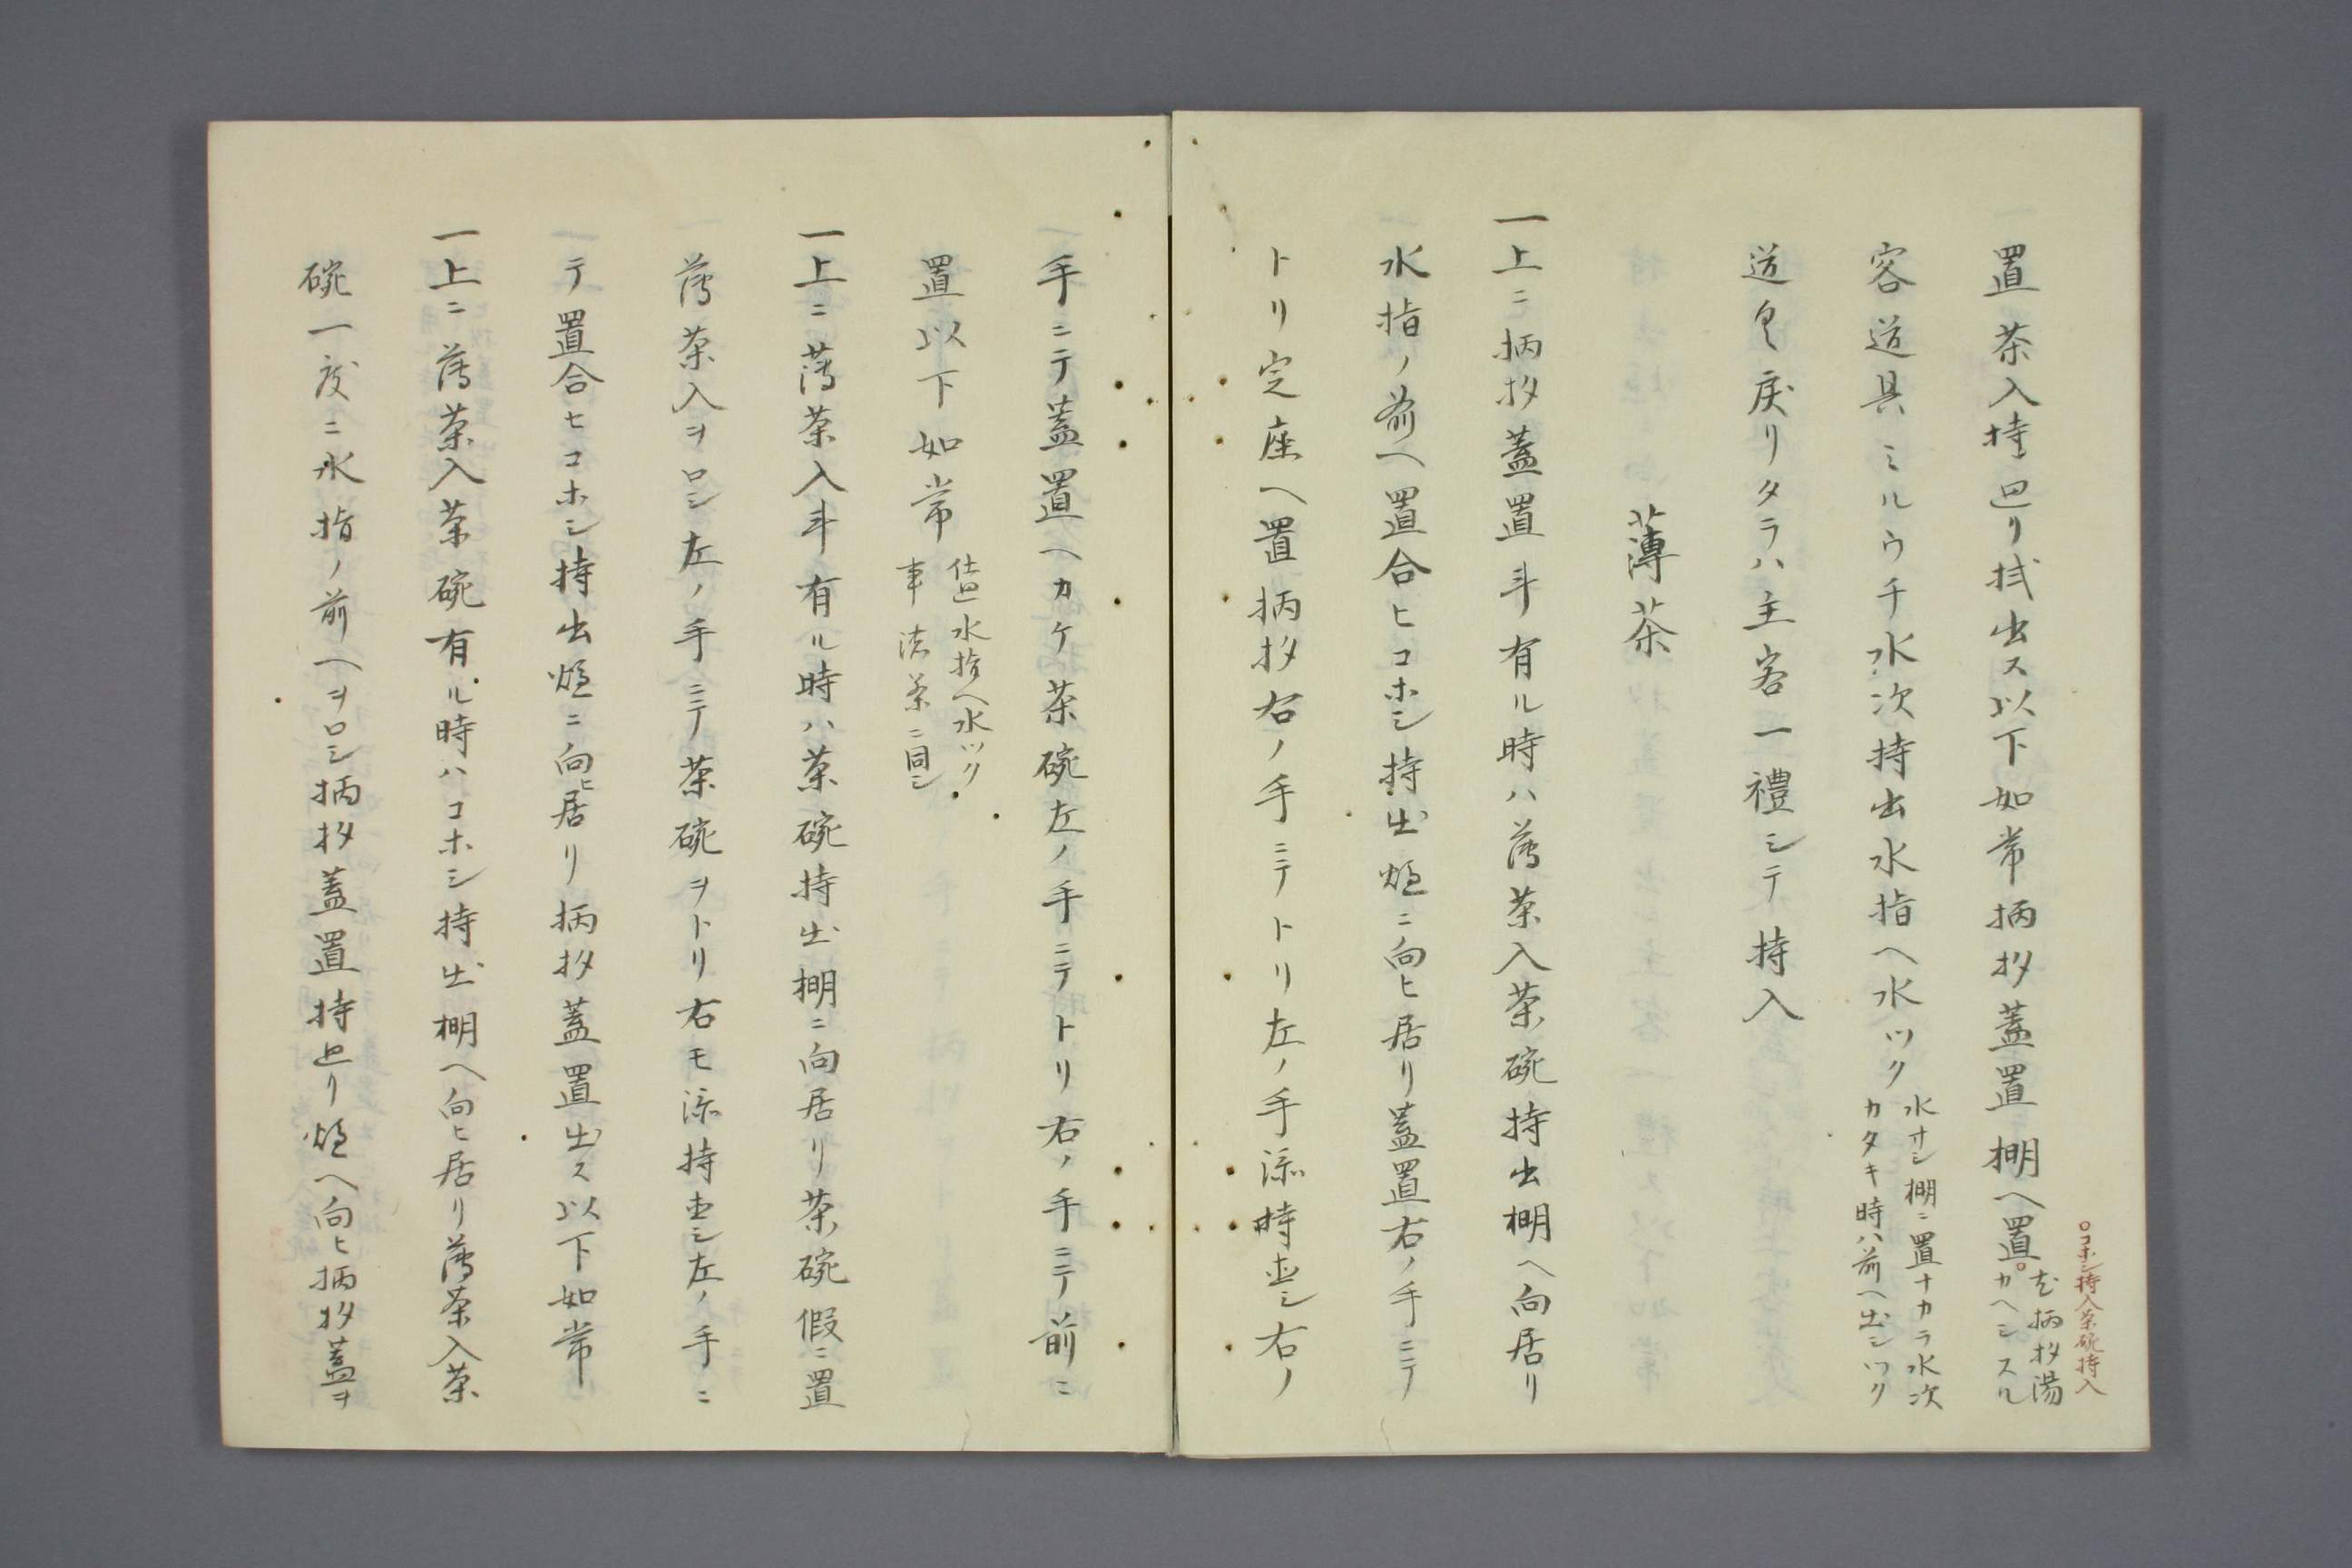 置茶入持廻リ拭出ス以下如常柄杓蓋置棚ヘ置。
カヘシスル
柄杓湯
○コホシ持入茶碗持入
客道具ミルウチ水次持出水指ヘ水ツク
水サシ棚ニ置ナカラ水次
カタキ時ハ前ヘ出シツク
道具戻リタラハ主客一禮シテ持入
薄茶
一上ニ柄杓蓋置斗有ル時ハ薄茶入茶碗持出棚ヘ向居リ
水指ノ前ヘ置合ヒコホシ持出炉ニ向ヒ居リ蓋置右ノ手ニテ
トリ定座ヘ置柄杓右ノ手ニテトリ左ノ手添時直シ右ノ
手ニテ蓋置ヘカケ茶碗左ノ手ニテトリ右ノ手ニテ前ニ
置以下如常
仕廻水指ヘ水ツク
事濃茶ニ同シ
一上ニ薄茶入斗有ル時ハ茶碗持出棚ニ向居リ茶碗假ニ置
薄茶入ヲロシ左ノ手ニテ茶碗ヲトリ右モ添持直シ左ノ手ニ
テ置合セコホシ持出炉ニ向ヒ居リ柄杓蓋置出ス以下如常
一上ニ薄茶入茶碗有ル時ハコホシ持出棚ヘ向ヒ居リ薄茶入茶
碗一度ニ水指ノ前ヘヲロシ柄杓蓋置持廻リ炉ヘ向ヒ柄杓蓋ヲ